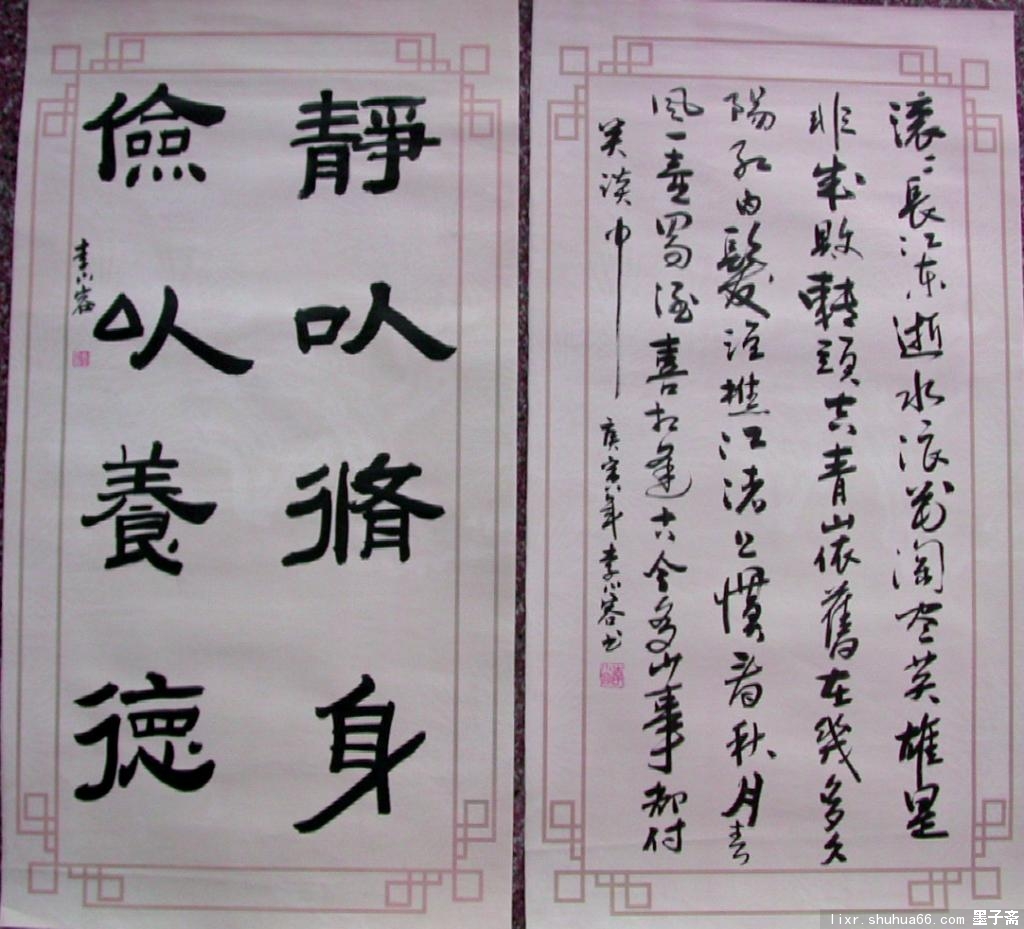 靜以脩身
儉以養德
李小容
滚滚長江东逝水浪花淘尽英雄是
非成敗轉頭空青山依舊在幾度夕
陽紅白髮漁樵江渚上慣看秋月春
風一壶濁酒喜相逢古今多少事都付
笑談中 庚寅年李小容书
lixr.shuhua66.com 墨子斋